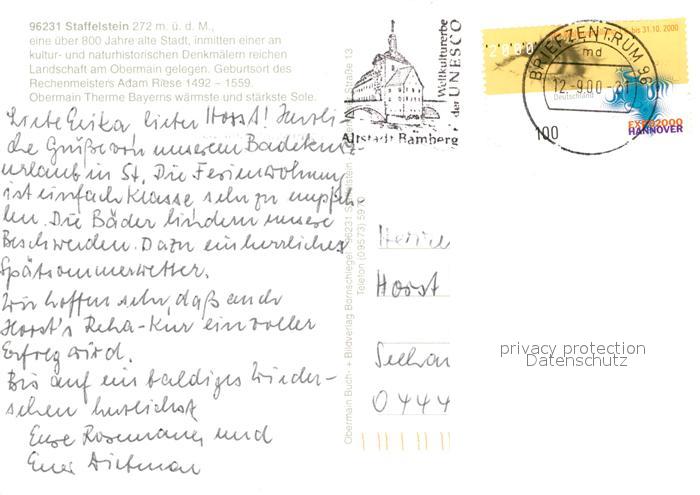 96231 Staffelstein 272 m. ü. d. M.,
eine über 800 Jahre alte Stadt, inmitten einer an
kultur- und naturhistorischen Denkmälern reichen
Landschaft am Obermain gelegen. Geburtsort des
Rechenmeisters Adam Riese 1492 – 1559.
Obermain Therme Bayerns wärmste und stärkste Sole.
Liebe Erika, lieber Horst! Herzli-
che Grüße von unserem Badekur-
urlaub in St. Die Ferienwohnung
ist einfach Klasse sehr zu empfeh-
len. Die Bäder lindern unsere
Beschwerden. Dazu ein herrliches
Spätsommerwetter.
Wir hoffen sehr, daß auch
Horst's Reha-Kur ein voller
Erfolg wird.
Bis auf ein baldiges Wieder-
sehen herzlichst
Eure Rosemarie und
Euer Dietmar
Obermain Buch- + Bildverlag Bornschlegel, 96231 Staffelstein, Straße 13
Telefon (0 95 73) 59
Altstadt Bamberg
Weltkulturerbe
der UNESCO
BRIEFZENTRUM 96
md
12.-9.00-21
bis 31.10. 2000
Deutschland
100
EXPO2000
HANNOVER
Horst
0444
privacy protection
Datenschutz